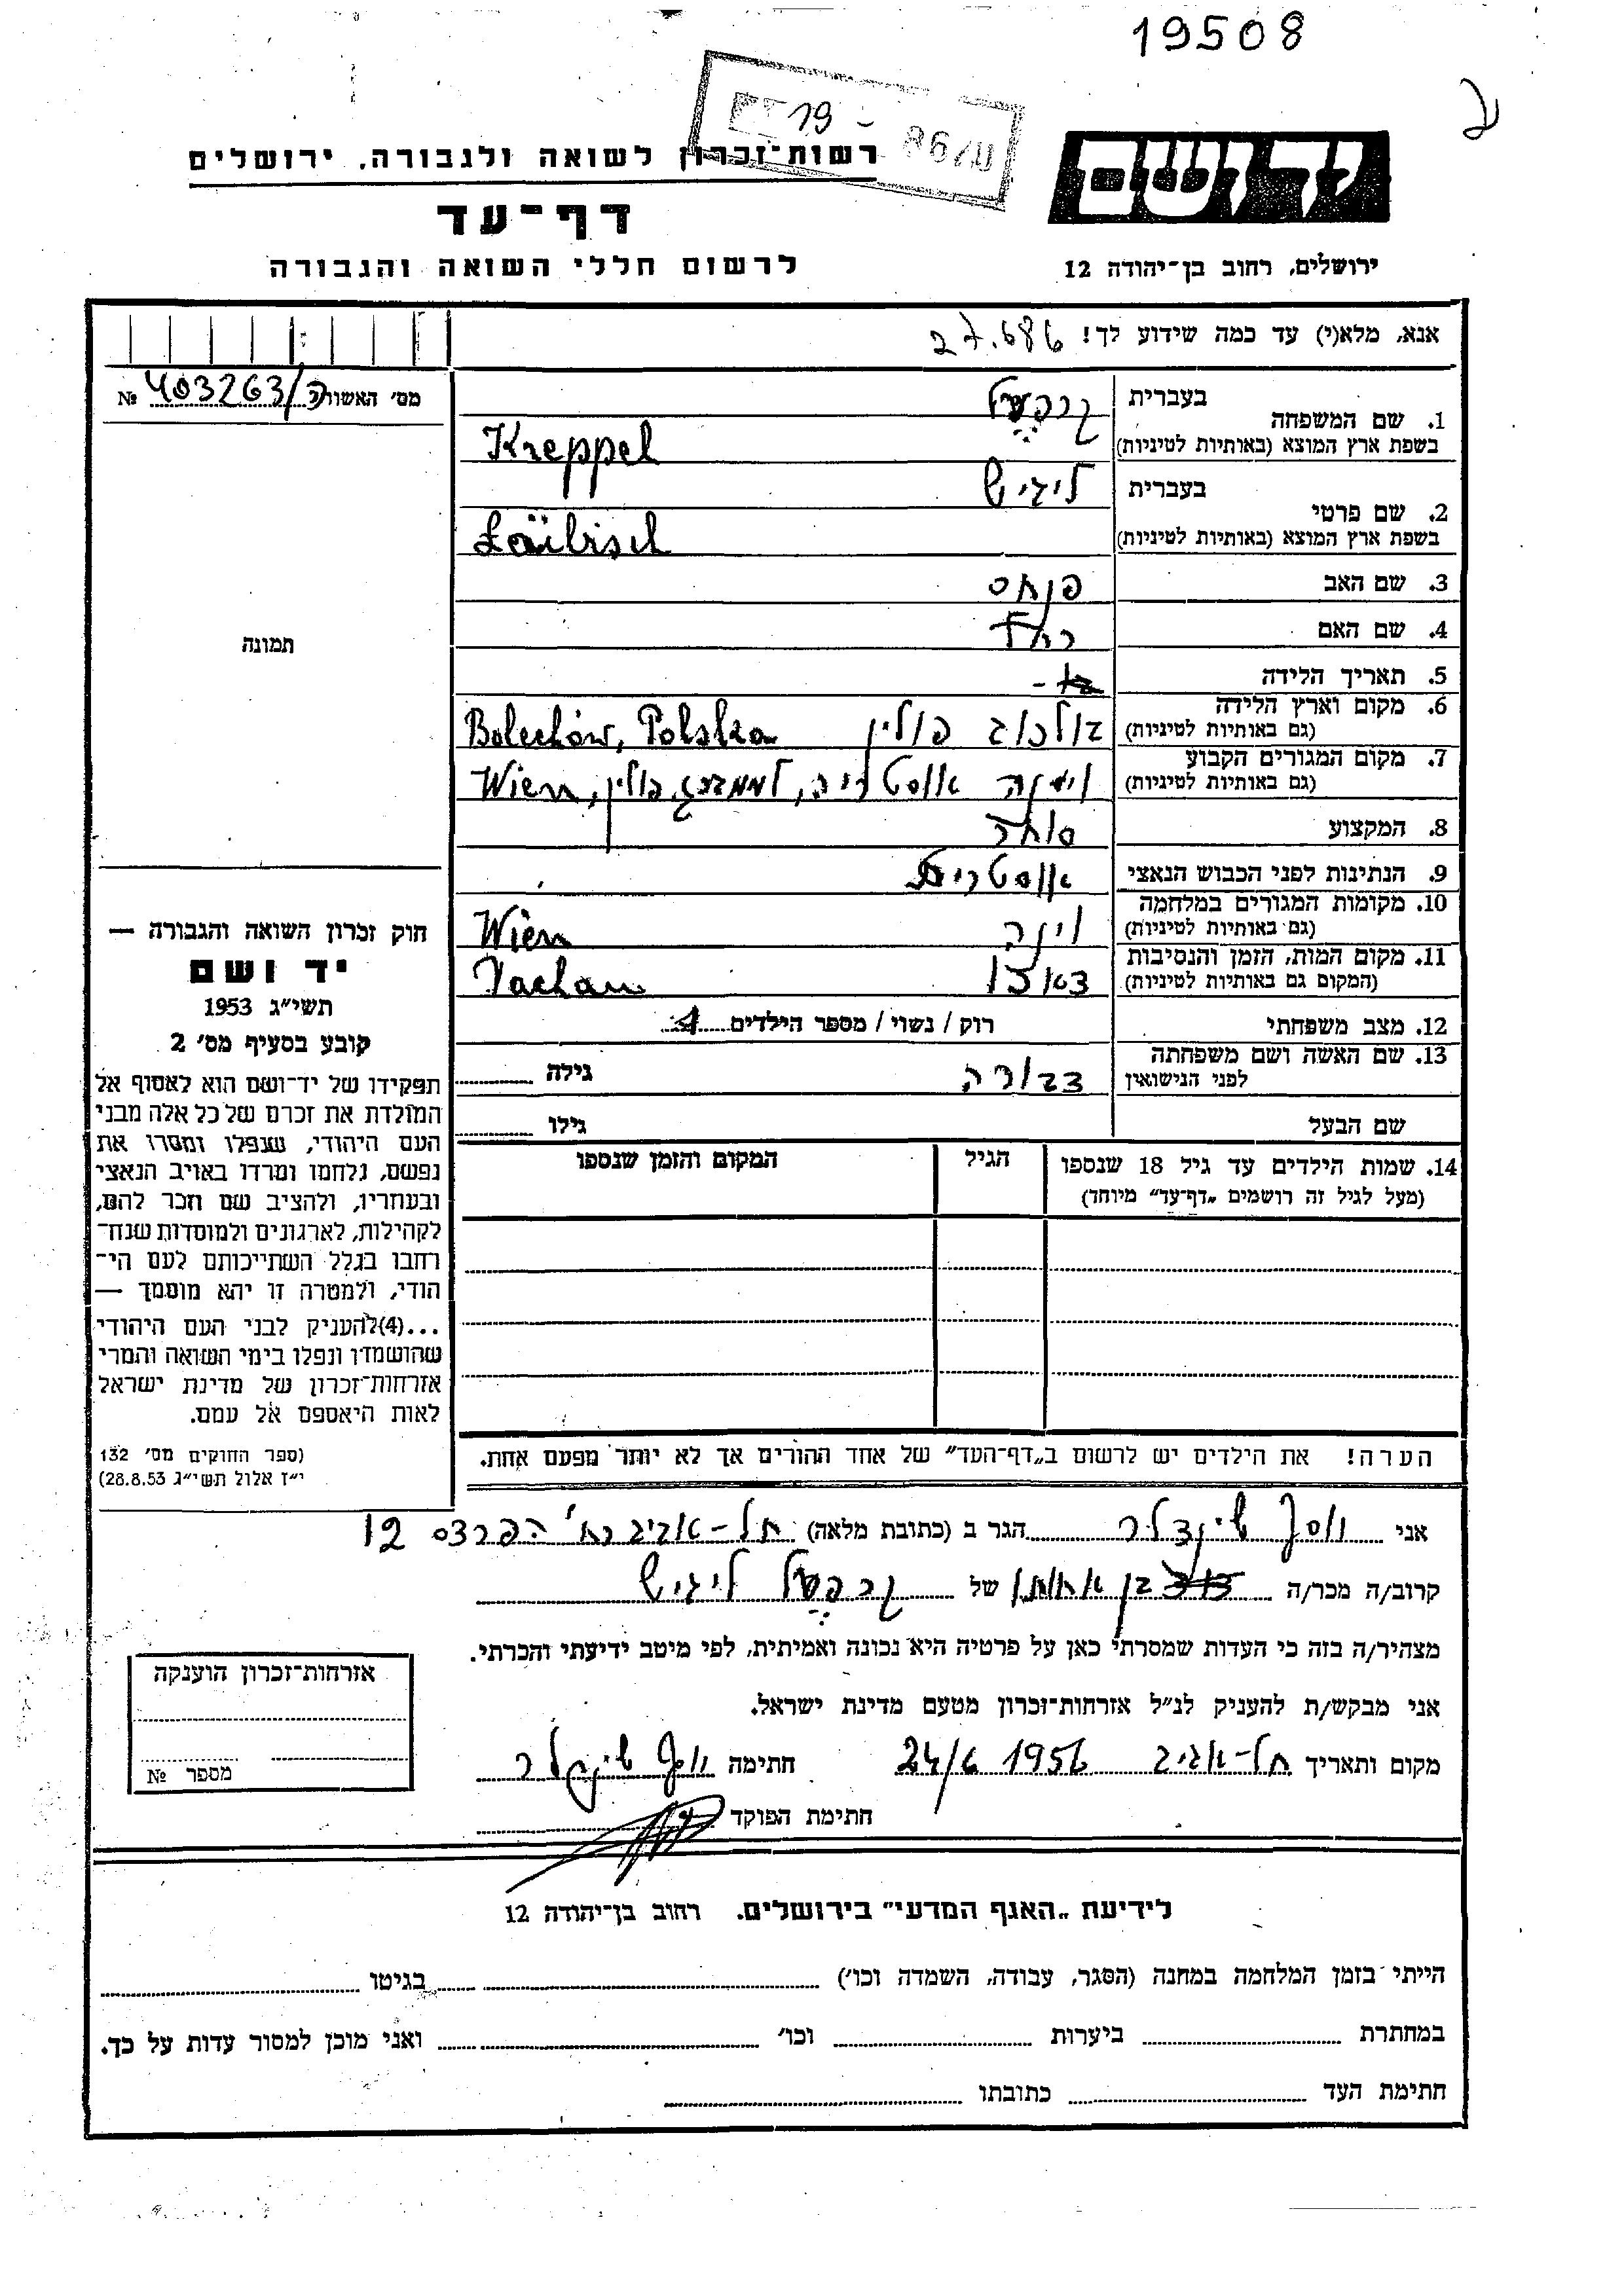 19508
19 -
יד ושם
רשות־זכרון לשואה ולגבורה, ירושלים
דף־עד
לרשום חללי השואה והגבורה
ירושלים, רחוב בן־יהודה 12
אנא, מלא(י) עד כמה שידוע לך!
מס׳ האשור 403263/ № 
1. שם המשפחה
בעברית קרפפל
בשפת ארץ המוצא (באותיות לטיניות) Kreppel
2. שם פרטי
בעברית ליביש
בשפת ארץ המוצא (באותיות לטיניות) Laïbisch
3. שם האב פנחס
4. שם האם רחל
5. תאריך הלידה -
6. מקום וארץ הלידה בולכוב פולין Bolechów, Polska
(גם באותיות לטיניות)
7. מקום המגורים הקבוע וינה אוסטריה, פולין, Wien,
(גם באותיות לטיניות)
8. המקצוע סוחר
9. הנתינות לפני הכבוש הנאצי אוסטרית
10. מקומות המגורים במלחמה וינה Wien
(גם באותיות לטיניות)
11. מקום המות, הזמן והנסיבות דאכו Dachau
(המקום גם באותיות לטיניות)
12. מצב משפחתי רוק / נשוי / מספר הילדים 4
13. שם האשה ושם משפחתה דבורה גילה
לפני הנישואין
שם הבעל גילו
14. שמות הילדים עד גיל 18 שנספו הגיל המקום והזמן שנספו
(מעל לגיל זה רושמים „דף־עד” מיוחד)
הערה! את הילדים יש לרשום ב„דף־העד” של אחד ההורים אך לא יותר מפעם אחת.
תמונה
חוק זכרון השואה והגבורה —
יד ושם
תשי״ג 1953
קובע בסעיף מס׳ 2
תפקידו של יד־ושם הוא לאסוף אל
המולדת את זכרם של כל אלה מבני
העם היהודי, שנפלו ומסרו את
נפשם, נלחמו ומרדו באויב הנאצי
ובעוזריו, ולהציב שם וזכר להם,
לקהילות, לארגונים ולמוסדות שנח־
רבו בגלל השתייכותם לעם הי־
הודי, ולמטרה זו יהא מוסמך —
...(4)להעניק לבני העם היהודי
שהושמדו ונפלו בימי השואה והמרי
אזרחות־זכרון של מדינת ישראל
לאות היאספם אל עמם.
(ספר החוקים מס׳ 132
י״ז אלול תשי״ג 28.8.53)
אני יוסף שינדלר הגר ב (כתובת מלאה) תל-אביב רח׳ הפרדס 12
קרוב/ה מכר/ה בן אחותו של קרפפל ליביש
מצהיר/ה בזה כי העדות שמסרתי כאן על פרטיה היא נכונה ואמיתית, לפי מיטב ידיעתי והכרתי.
אני מבקש/ת להעניק לנ״ל אזרחות־זכרון מטעם מדינת ישראל.
מקום ותאריך תל-אביב 24/6 1956 חתימה יוסף שינדלר
חתימת הפוקד
אזרחות־זכרון הוענקה
מספר №
לידיעת „האגף המדעי” בירושלים, רחוב בן־יהודה 12
הייתי בזמן המלחמה במחנה (הסגר, עבודה, השמדה וכו׳) בגיטו
במחתרת ביערות וכו׳ ואני מוכן למסור עדות על כך.
חתימת העד כתובתו